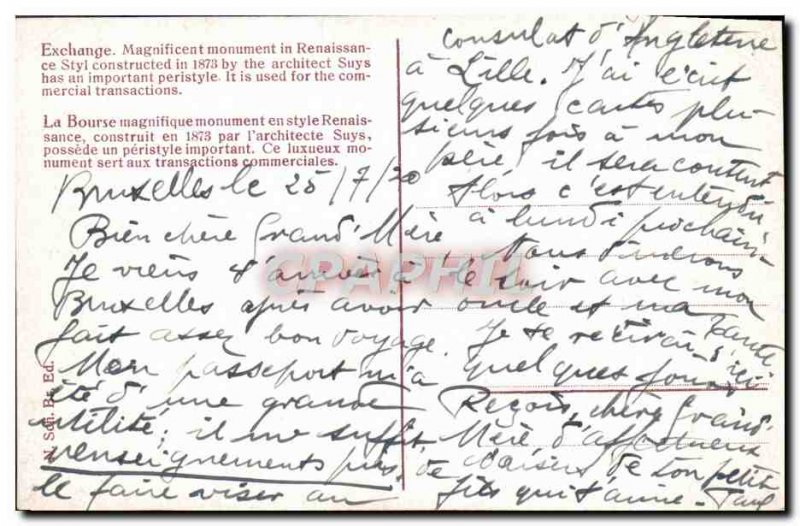 Exchange. Magnificent monument in Renaissan-
ce Styl constructed in 1873 by the architect Suys
has an important peristyle. It is used for the com-
mercial transactions.
La Bourse magnifique monument en style Renais-
sance, construit en 1873 par l'architecte Suys,
possède un péristyle important. Ce luxueux mo-
nument sert aux transactions commerciales.
Bruxelles le 25/7/20
Bien chère Grand'Mère
Je viens d'arriver à
Bruxelles après avoir
fait assez bon voyage.
Mon passeport m'a
été d'une grande
utilité; il me suffit,
renseignements pris, de
le faire viser au
consulat d'Angleterre
à Lille. J'ai écrit
quelques cartes plu-
sieurs fois à mon
père, il sera content
Alors c'est entendu
à lundi prochain
Nous dînerons
le soir avec mon
oncle et ma Tante
Je te récrirai d'ici
quelques jours
Reçois, chère Grand'
Mère d'affectueux
baisers de ton petit
fils qui t'aime - Paul
N. Sch. Br. Ed.
CPAPHIL